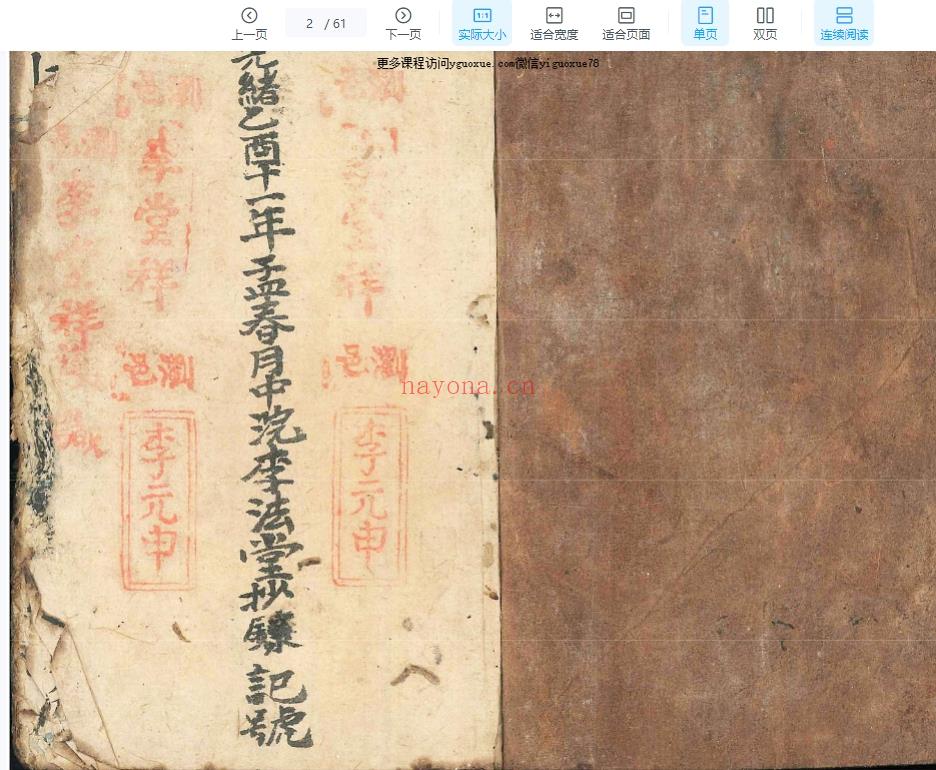 上一页
2 / 61
下一页
实际大小
适合宽度
适合页面
单页
双页
连续阅读
更多课程访问yguoxue.com微信yiguoxue78
光緒乙酉十一年孟春月中浣李法堂抄錄 記號
瀏邑
李元申
李堂祥
瀏邑
李元申
堂祥
祥
nayona.cn